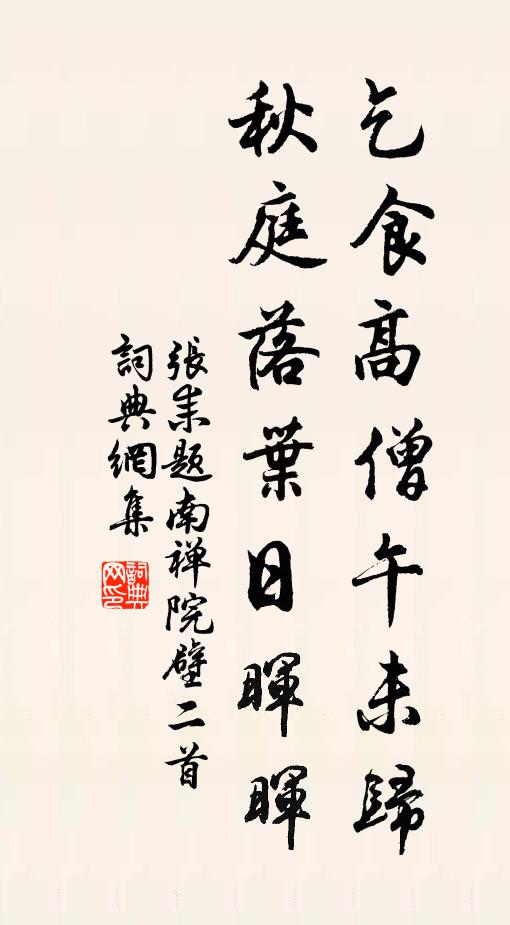 乞食高僧午未歸
秋庭落葉日暉暉
張耒題南禅院壁二首
詞典網集
詞典网印